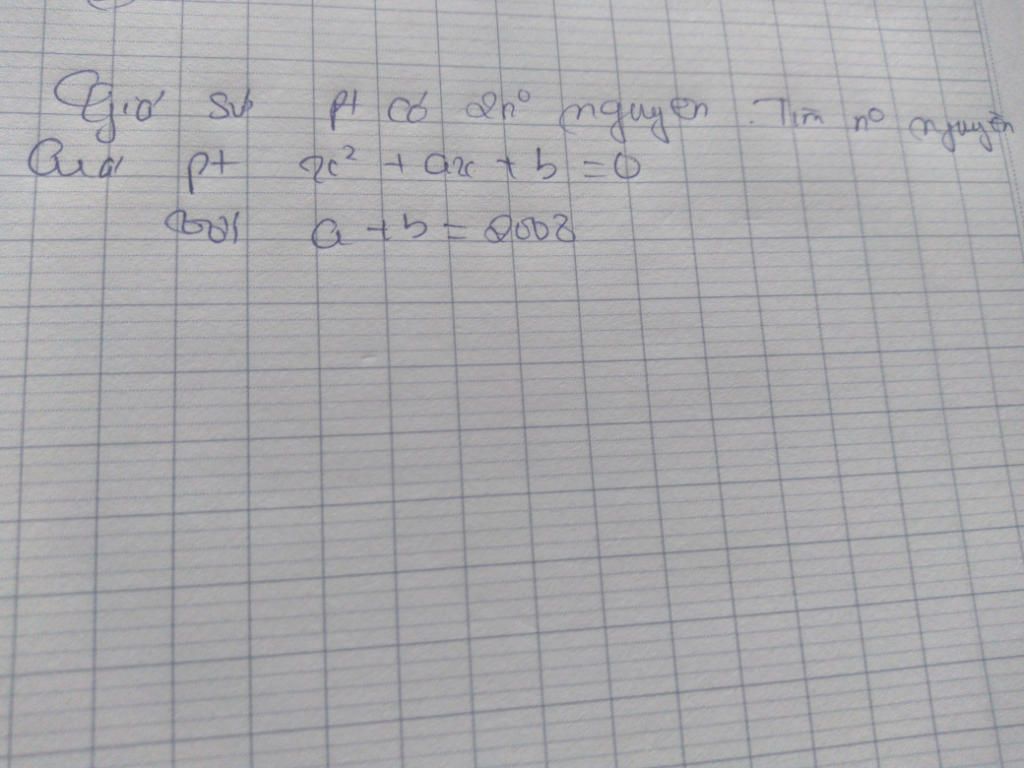 Giả sử pt có 2 n⁰ nguyên. Tìm n⁰ nguyên
Của pt x² + ax + b = 0
Với a + b = 2002